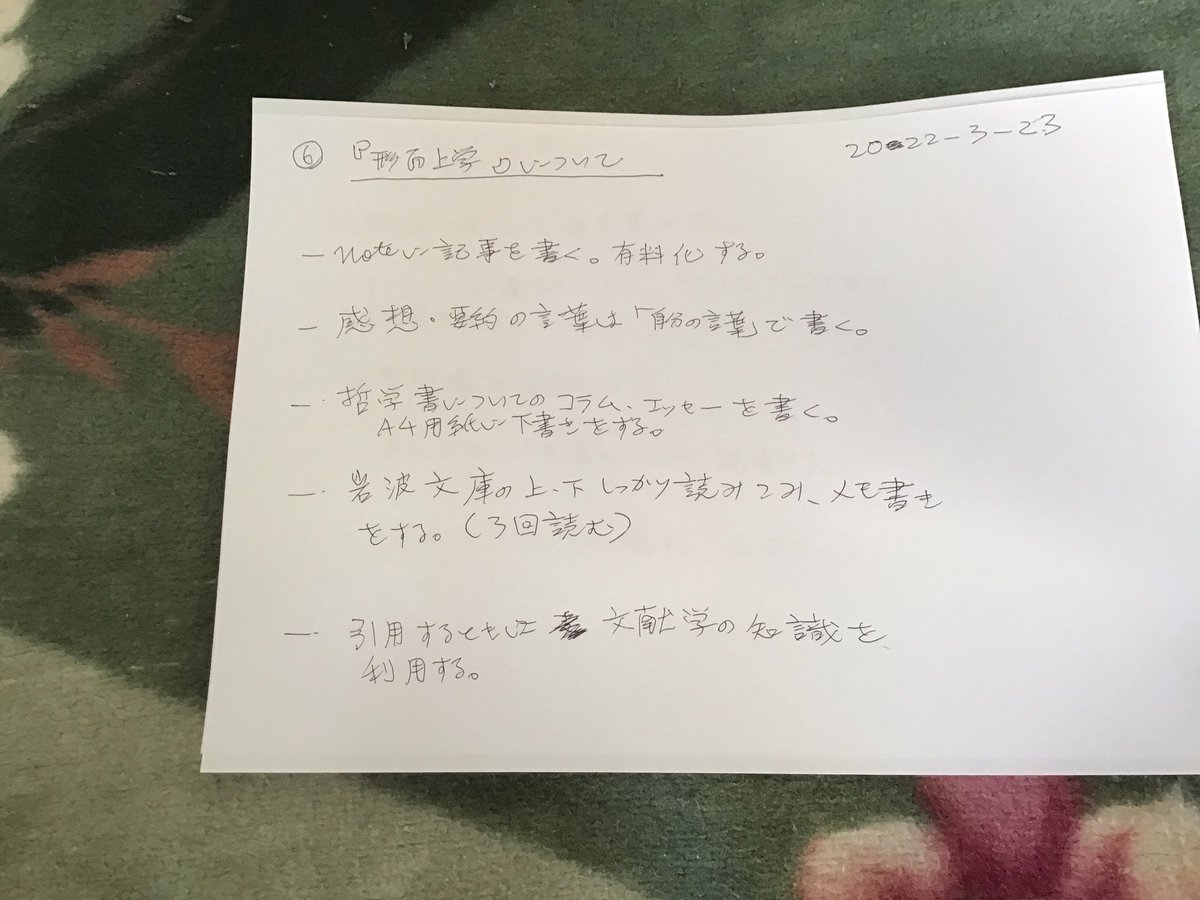 ⑥ 『形而上学』について
2022-3-23
— noteに記事を書く。有料化する。
— 感想・要約の言葉は「自分の言葉」で書く。
— 哲学書についてのコラム、エッセーを書く。
A4用紙に下書きをする。
— 岩波文庫の上・下しっかり読みこみ、メモ書き
をする。(3回読む)
— 引用するときは 文献学の知識を、
利用する。